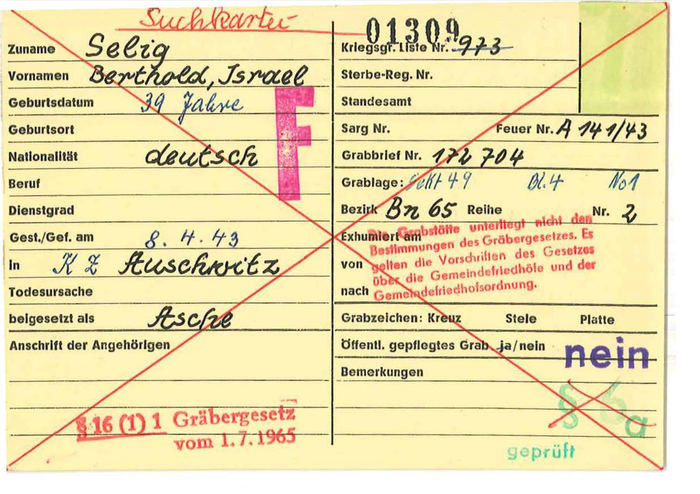 Suchkartei
01309
Zuname Selig
Vornamen Berthold, Israel
Geburtsdatum 39 Jahre
Geburtsort
Nationalität deutsch
Beruf
Dienstgrad
Gest./Gef. am 8.4.43
in KZ Auschwitz
Todesursache
beigesetzt als Asche
Anschrift der Angehörigen
F
§ 16 (1) 1 Gräbergesetz
vom 1.7.1965
Kriegsgr. Liste Nr. 973
Sterbe-Reg. Nr.
Standesamt
Sarg Nr. Feuer Nr. A 141/43
Grabbrief Nr. 172 704
Grablage: Sekt 49 Bl. 4 No 1
Bezirk Bn 65 Reihe Nr. 2
Exhumiert am
von
nach
Die Grabstätte unterliegt nicht den
Bestimmungen des Gräbergesetzes. Es
gelten die Vorschriften des Gesetzes
über die Gemeindefriedhöfe und der
Gemeindefriedhofsordnung.
Grabzeichen: Kreuz Stele Platte
Öffentl. gepflegtes Grab ja/nein nein
Bemerkungen
§ 6a
geprüft